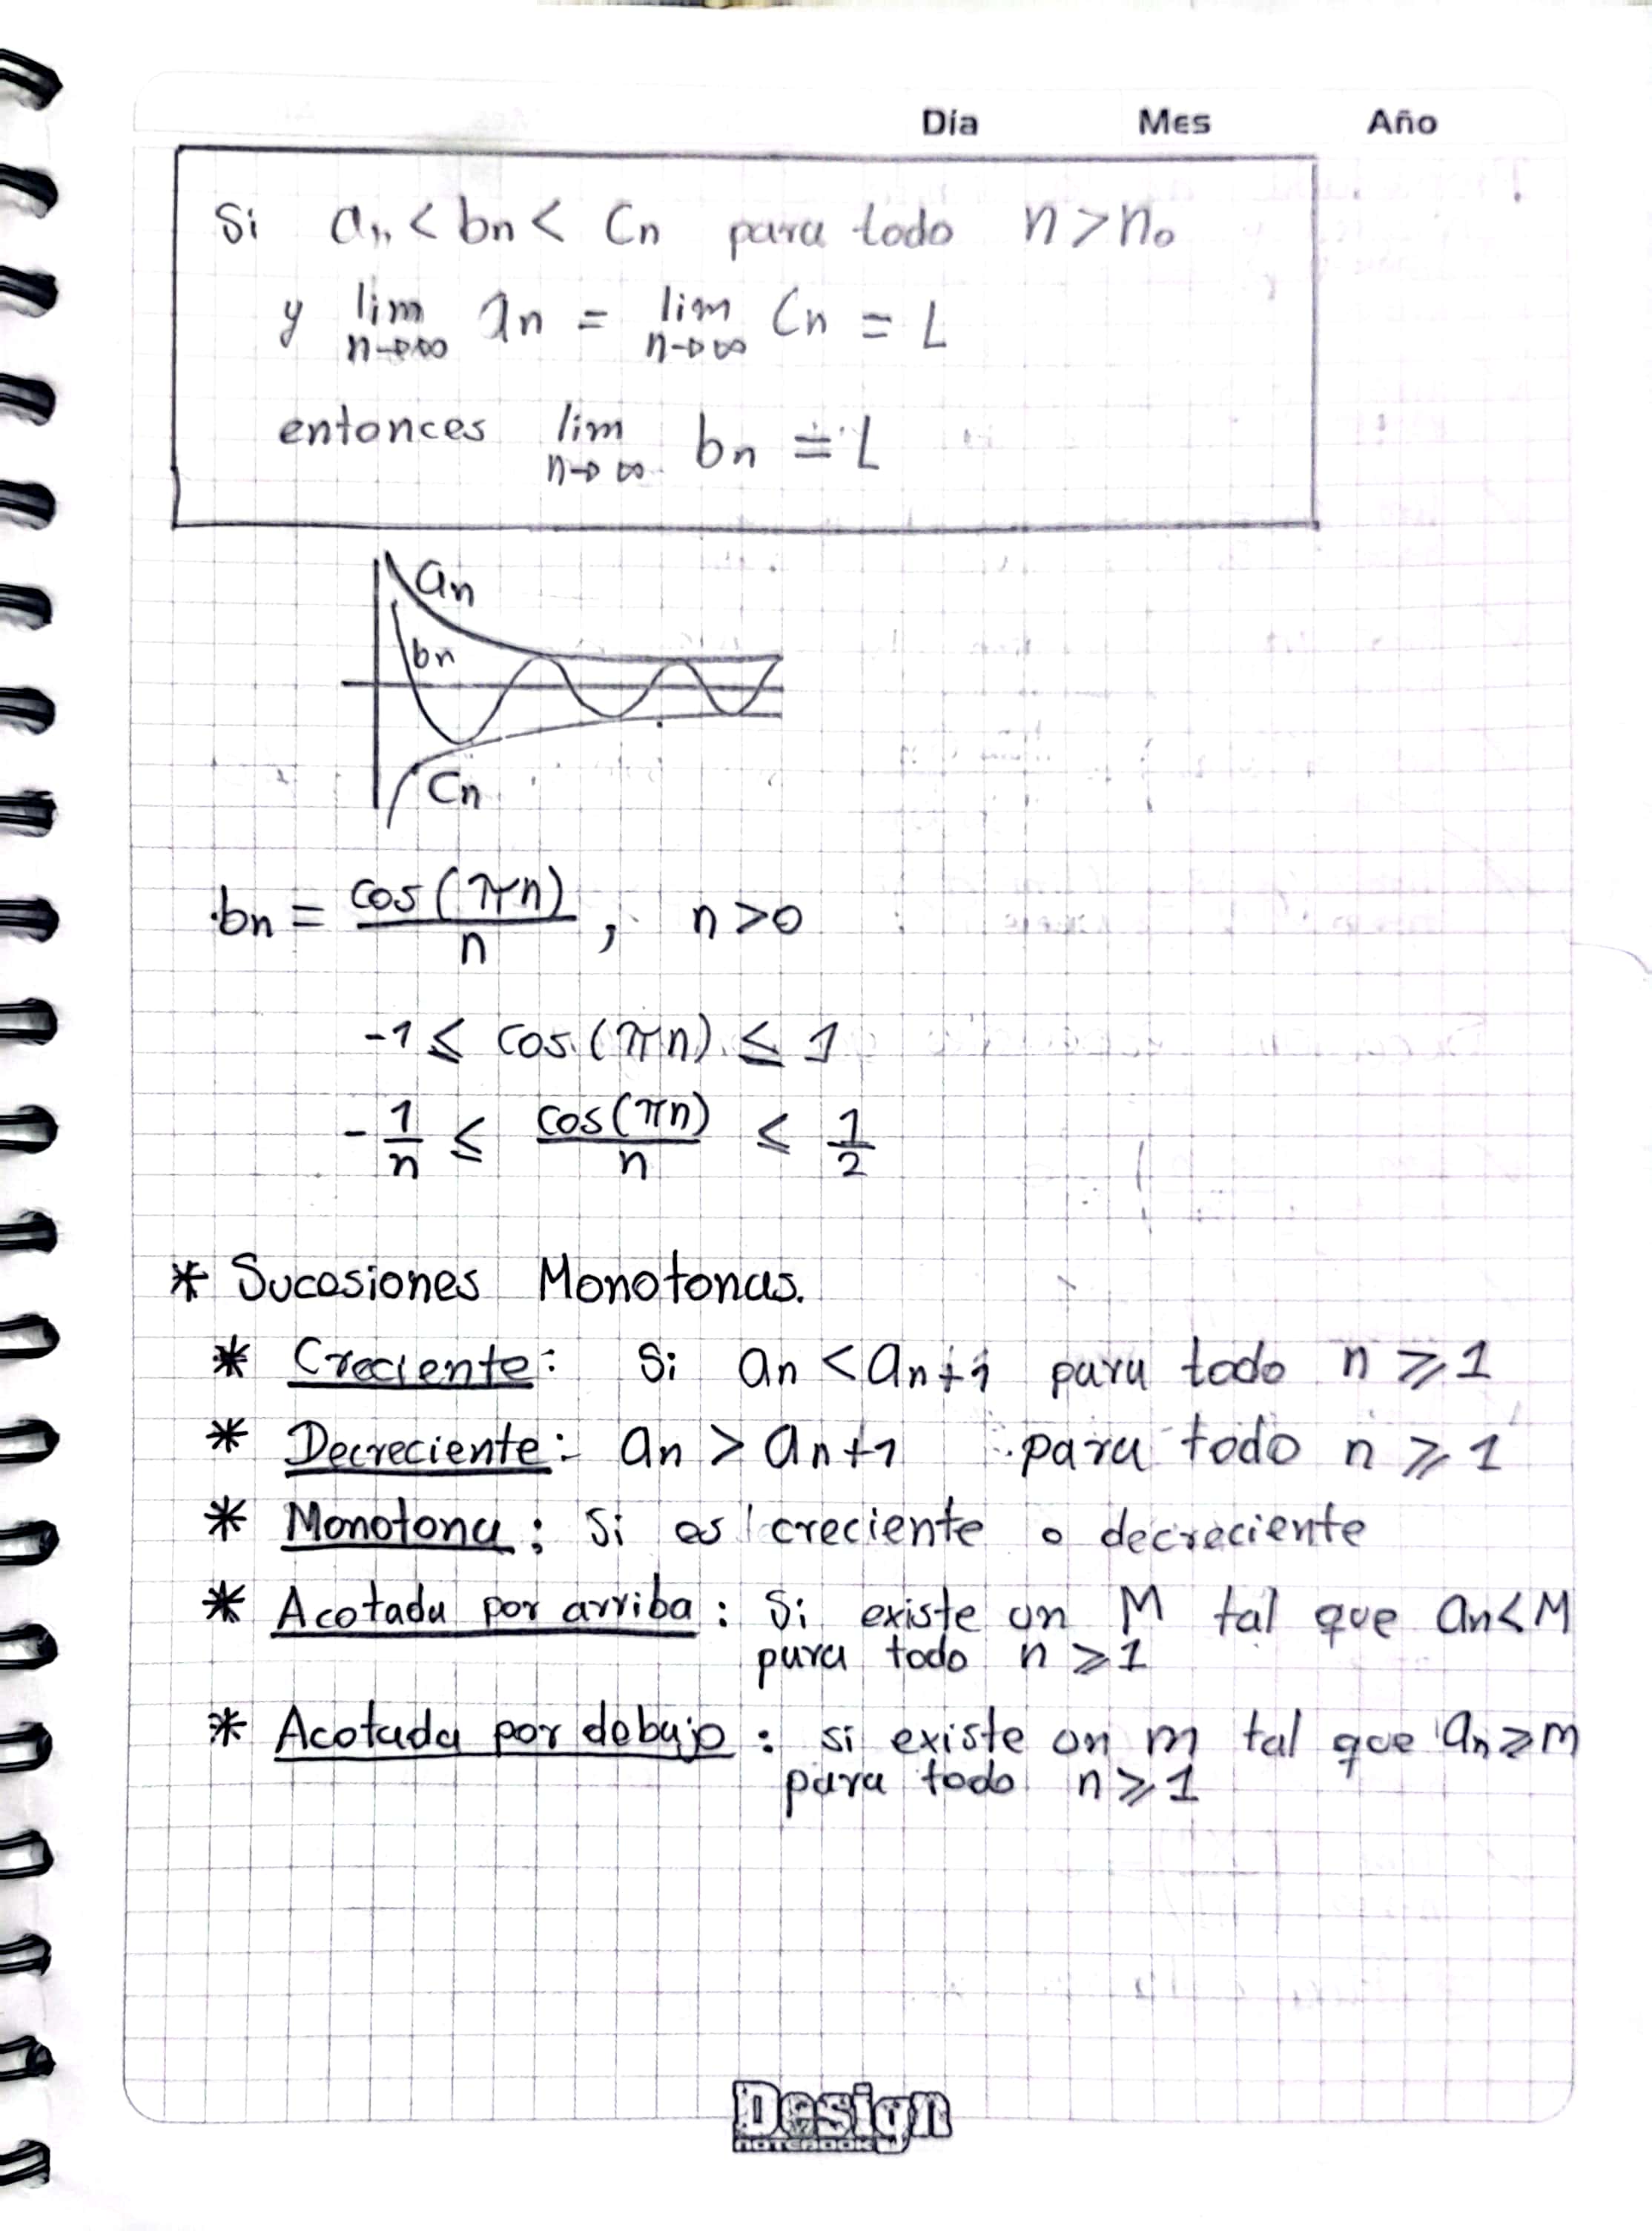 Día Mes Año
Si an < bn < Cn para todo n > n₀
y lim n→∞ an = lim n→∞ Cn = L
entonces lim n→∞ bn = L
an
bn
Cn
bn = cos(πn)/n , n>0
-1 ≤ cos(πn) ≤ 1
-1/n ≤ cos(πn)/n ≤ 1/2
* Sucesiones Monotonas.
* Creciente: Si an < an+1 para todo n ⩾ 1
* Decreciente: an > an+1 para todo n ⩾ 1
* Monotona: Si es creciente o decreciente
* Acotada por arriba: Si existe un M tal que an<M
para todo n ⩾ 1
* Acotada por debajo: si existe un m tal que an⩾m
para todo n ⩾ 1
Design
NOTEBOOK